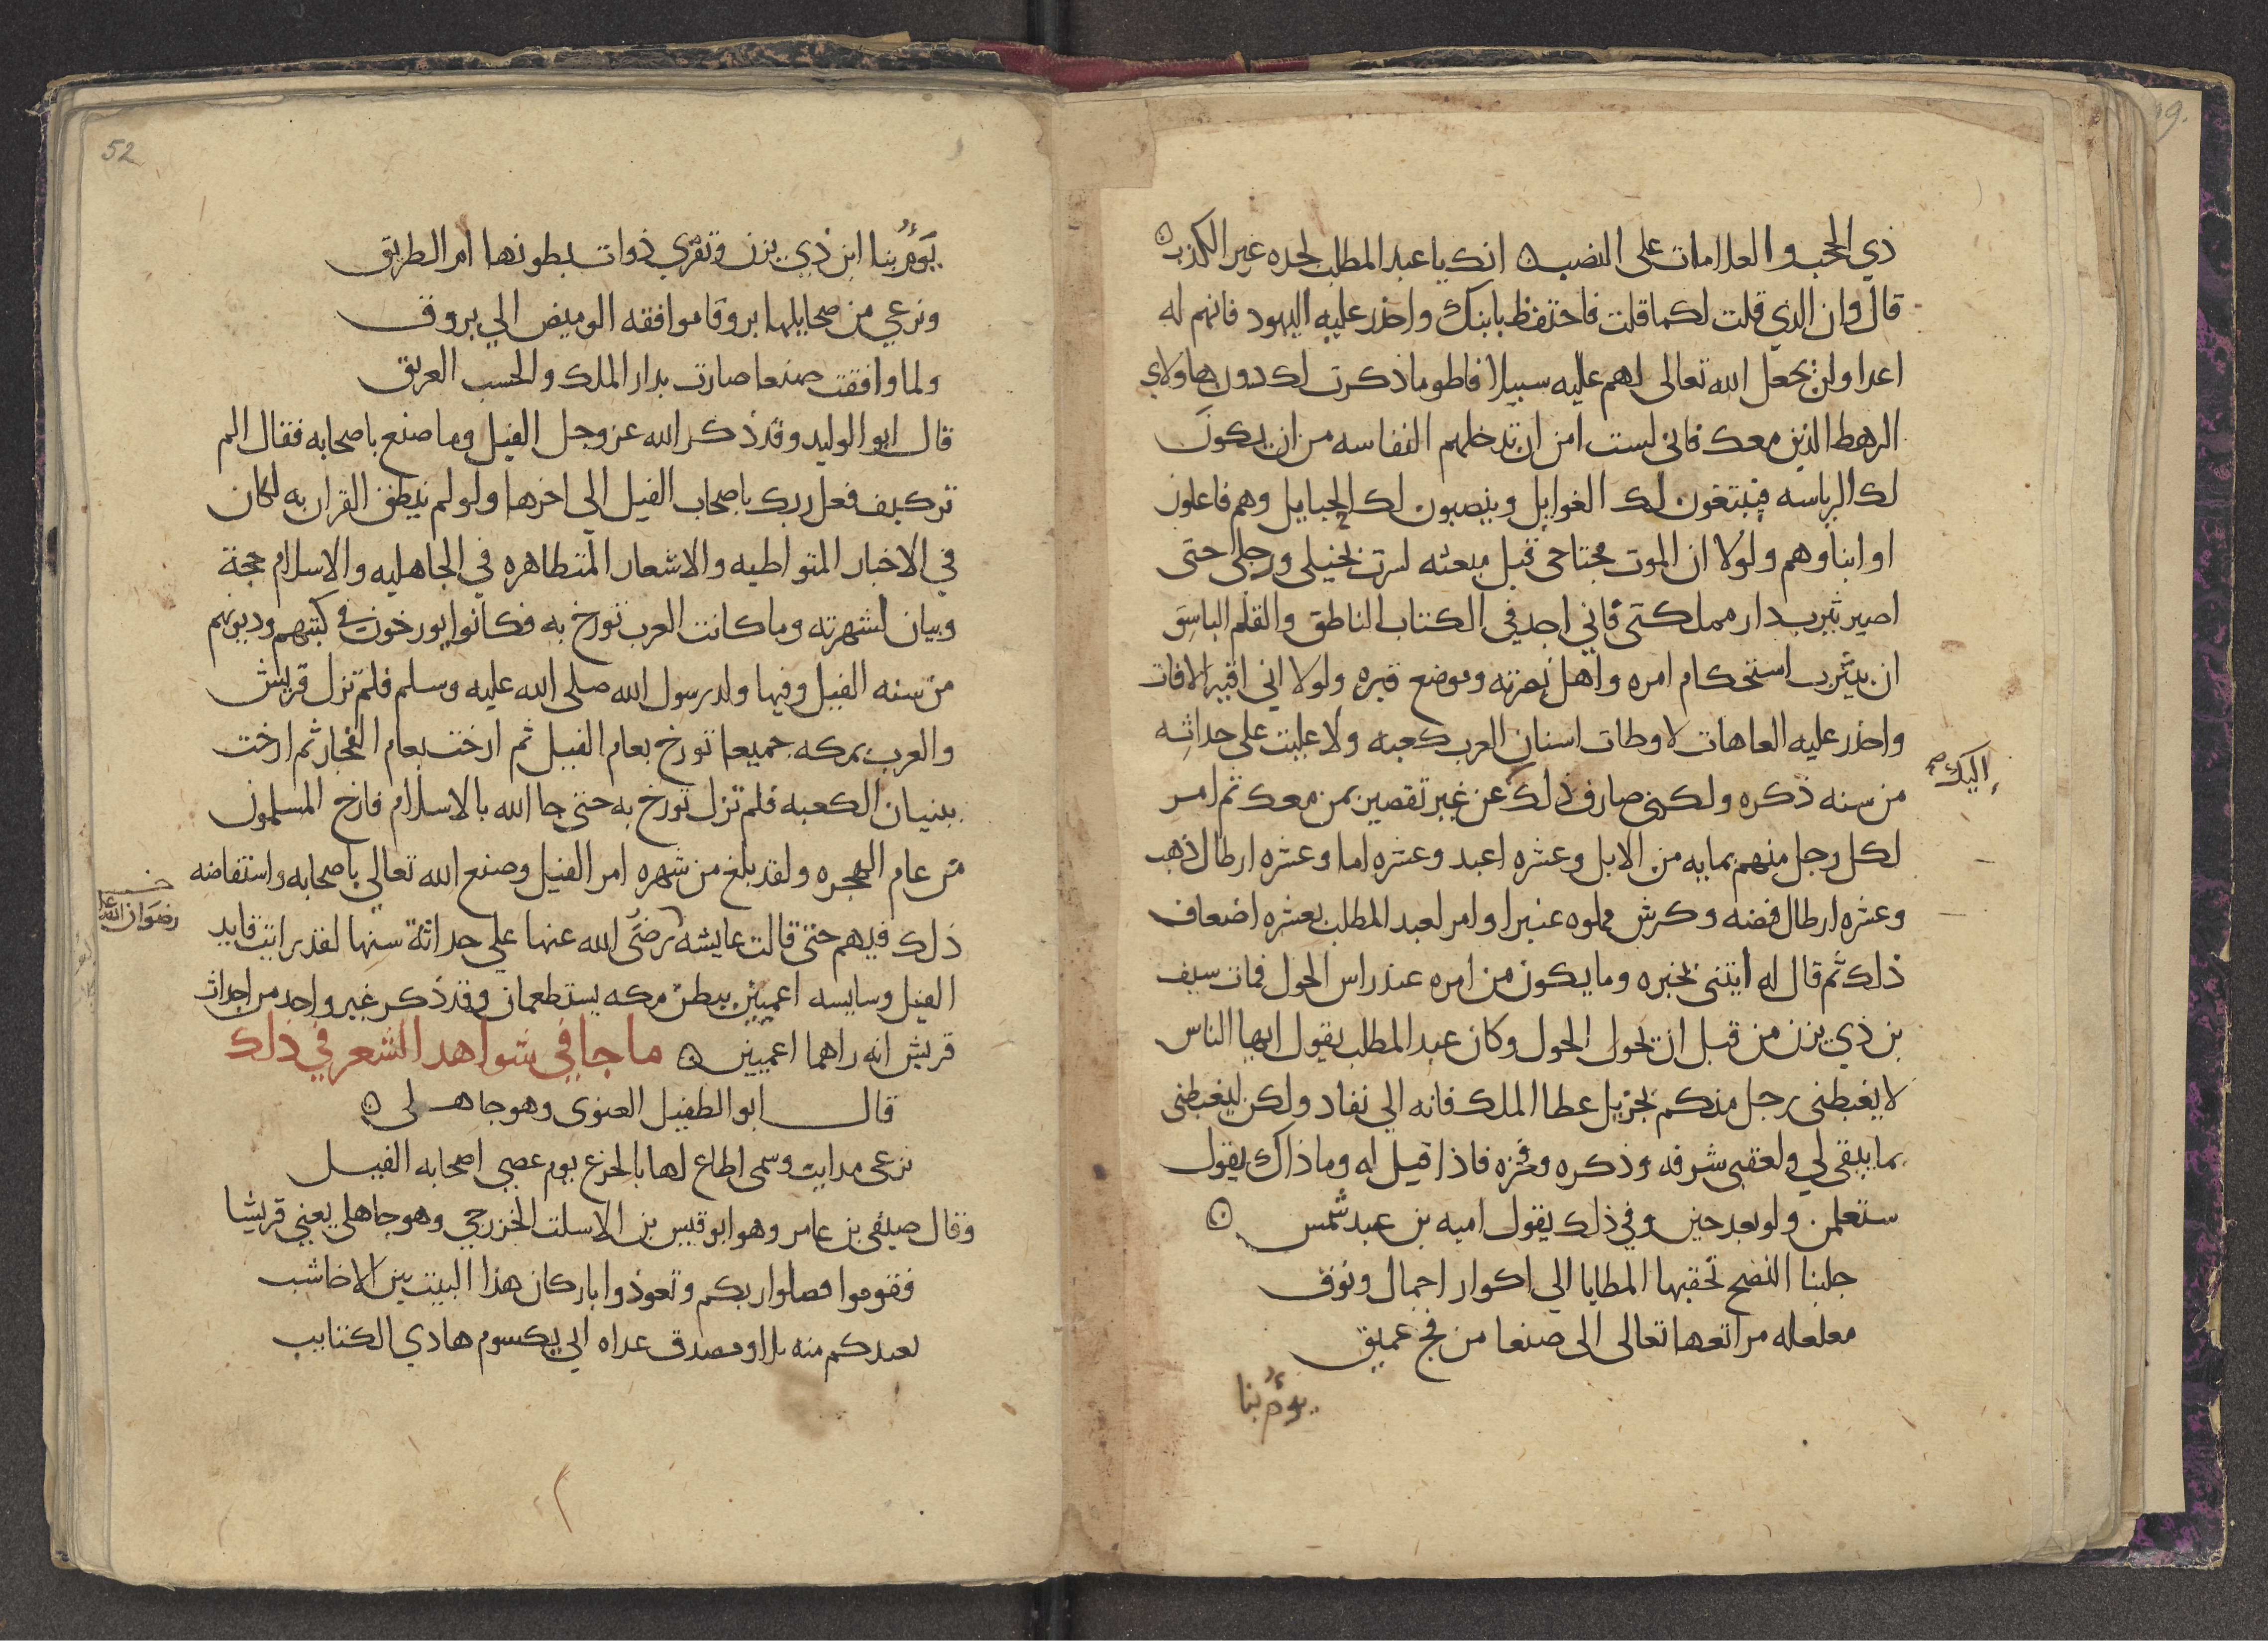 ذي الحجب والعلامات على النصب انك يا عبد المطلب لجده غير الكذب
قال وان الذي قلت لكما قلت فاحتفظ بابنك واحذر عليه اليهود فانهم له
اعدا ولن يجعل الله تعالى لهم عليه سبيلا فاطو ما ذكرت لك دون هاولاي
الرهط الذين معك فاني لست امن ان تدخلهم النفاسه من ان يكون
لك الرياسه فيبتغون لك الغوايل وينصبون لك الحبايل وهم فاعلون
او ابناوهم ولولا ان الموت مجتاحي قبل مبعثه لسرت بخيلي ورجلي حتى
اصير يثرب دار مملكتي فاني اجد في الكتاب الناطق والعلم الباسق
ان بيثرب استحكام امره واهل نصرته وموضع قبره ولولا اني اقيه الافات
واحذر عليه العاهات لاوطات اسنان العرب كعبه ولاعليت على حداثه
من سنه ذكره ولكني صارف ذلك عن غير تقصير بمن معك ثم امر
اليك صح
لكل رجل منهم بمايه من الابل وعشره اعبد وعشره اما وعشره ارطال ذهب
وعشره ارطال فضه وكرش مملوه عنبرا وامر لعبد المطلب بعشره اضعاف
ذلك ثم قال له ايتني بخبره وما يكون من امره عند راس الحول فمات سيف
بن ذي يزن من قبل ان يحول الحول وكان عبد المطلب يقول ايها الناس
لا يغبطني رجل منكم بجزيل عطا الملك فانه الي نفاد ولكن ليغبطني
بما يبقى لي ولعقبي شرفه وذكره وفخره فاذا قيل له وما ذاك يقول
ستعلمن ولو بعد حين وفي ذلك يقول اميه بن عبد شمس
جلبنا النصح تحقبها المطايا الي اكوار اجمال ونوق
مغلغله مراتعها تعالى الى صنعا من فج عميق
يوم بنا
52
يوم بنا ابن ذي يزن وتفري ذوات بطونها ام الطريق
وترعي من مخايلها بروقا موافقه الوميض الي بروق
ولما وافقت صنعا صارت بدار الملك والحسب العريق
قال ابو الوليد وقد ذكر الله عز وجل الفيل وما صنع باصحابه فقال الم
تر كيف فعل ربك باصحاب الفيل الي اخرها ولو لم ينطق القران به لكان
في الاخبار المتواطيه والاشعار المتظاهره في الجاهليه والاسلام حجة
وبيان لشهرته وما كانت العرب تورخ به فكانوا يورخون في كتبهم وديونهم
من سنه الفيل وفيها ولد رسول الله صلى الله عليه وسلم فلم تزل قريش
والعرب بمكه جميعا تورخ بعام الفيل ثم ارخت بعام الفجار ثم ارخت
ببنيان الكعبه فلم تزل تورخ به حتى جا الله بالاسلام فارخ المسلمون
من عام الهجره ولقد بلغ من شهره امر الفيل وصنع الله تعالي باصحابه واستفاضه
ذلك فيهم حتى قالت عايشه رضي الله عنها علي حداثة سنها لقد رايت قايد
رضوان الله
الفيل وسايسه اعميين ببطن مكه يستطعمان وقد ذكر غير واحد من احداث
قريش انه راهما اعميين ما جا في شواهد الشعر في ذلك
قال ابو الطفيل الغنوي وهو جاهلي
ترعى مذايب وسمي اطاع لها بالجزع يوم عصي اصحابه الفيل
وقال صيفي بن عامر وهو ابو قيس بن الاسلت الخزرجي وهو جاهلي يعني قريشا
فقوموا فصلوا ربكم وتعوذوا باركان هذا البيت بين الاخاشب
فعندكم منه بلا ومصدق غداه ابي يكسوم هادي الكتايب